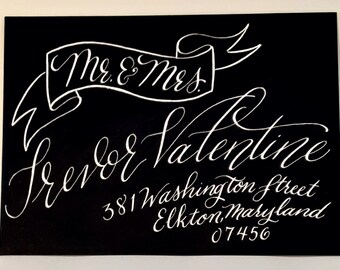 Mr. & Mrs.
Trevor Valentine
381 Washington Street
Elkton, Maryland
07456